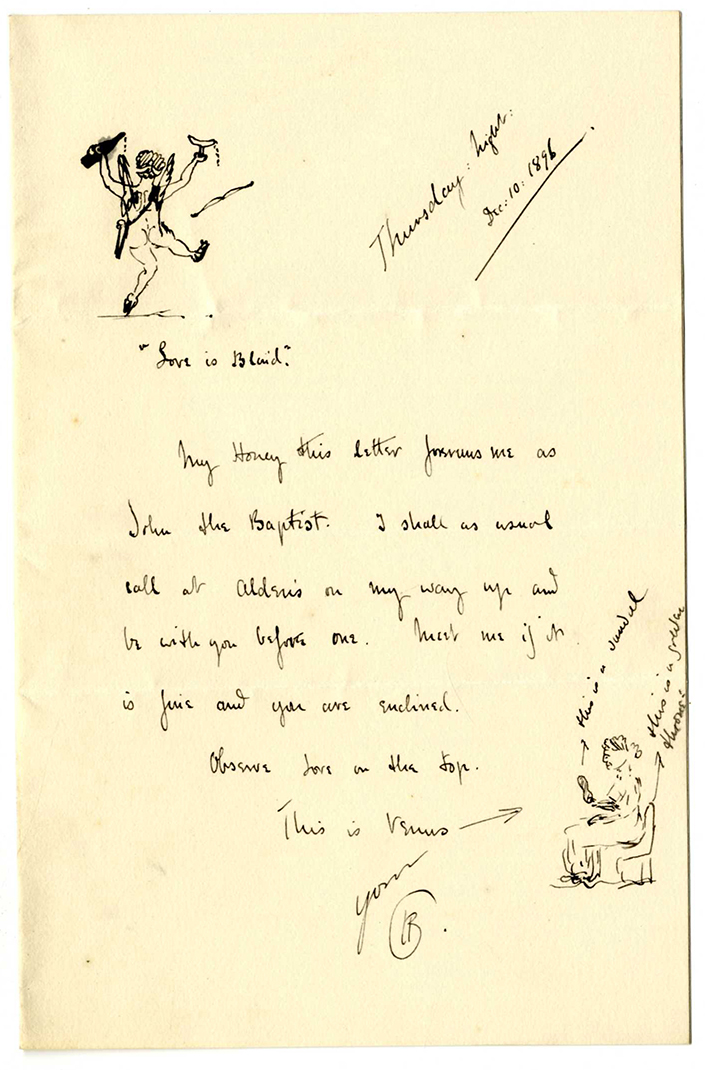 Thursday: Night:
Dec: 10: 1896
"Love is Blind."
My Honey this letter foreruns me as
John the Baptist. I shall as usual
call at Alden's on my way up and
be with you before one. Meet me if it
is fine and you are enclined.
Observe Love on the top.
This is Venus
this is a sandal
this is a golden
throne:
yours